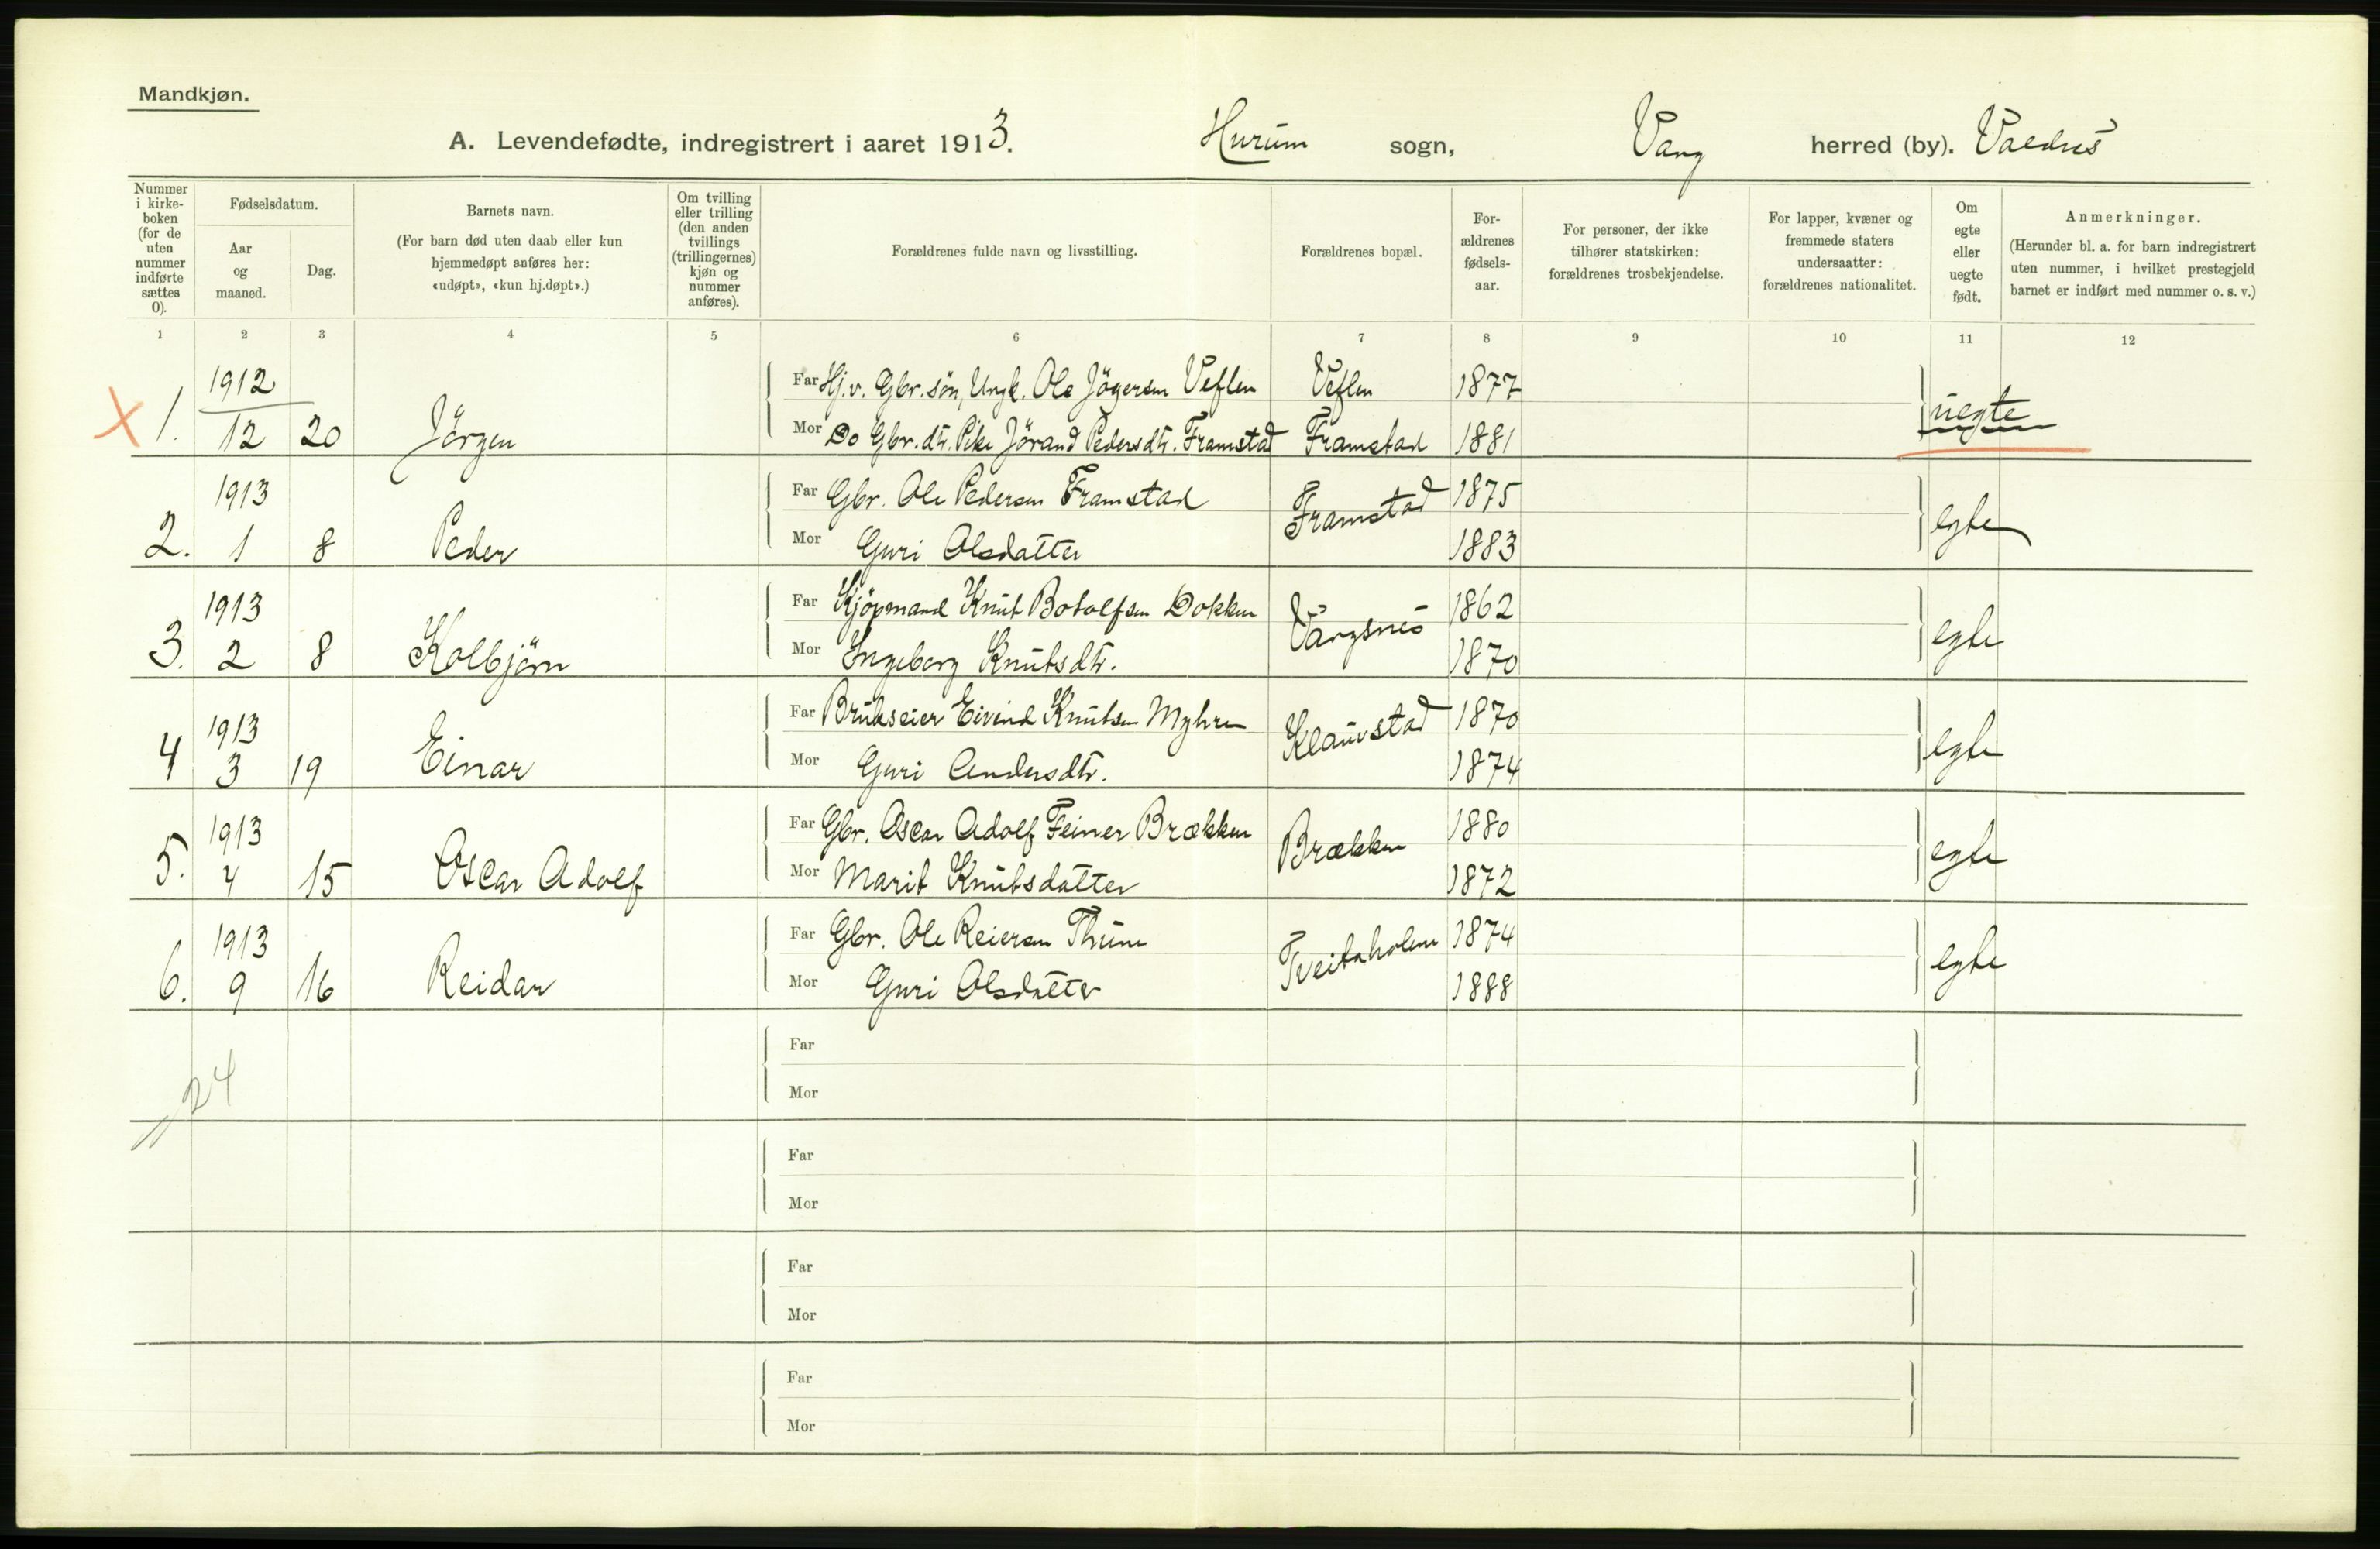 Mandkjøn.
A. Levendefødte, indregistrert i aaret 1913. Hurum sogn, Vang herred (by). Valdres
Nummer i kirke- boken (for de uten nummer indførte sættes 0).
Fødselsdatum.
Aar og maaned.
Dag.
Barnets navn.
(For barn død uten daab eller kun hjemmedøpt anføres her: «udøpt», «kun hj.døpt».)
Om tvilling eller trilling (den anden tvillings (trillingernes) kjøn og nummer anføres).
Forældrenes fulde navn og livsstilling.
Forældrenes bopæl.
For- ældrenes fødsels- aar.
For personer, der ikke tilhører statskirken: forældrenes trosbekjendelse.
For lapper, kvæner og fremmede staters undersaatter: forældrenes nationalitet.
Om egte eller uegte født.
Anmerkninger.
(Herunder bl. a. for barn indregistrert uten nummer, i hvilket prestegjeld barnet er indført med nummer o. s. v.)
1 2 3 4 5 6 7 8 9 10 11 12
1912 Far Hj.v. Gbr. søn, Ungk. Ole Jögersen Veflen Veflen 1877
X 1. 12 20 Jörgen Mor Do Gbr. dtr. Pike Jörand Pedersdtr. Framstad Framstad 1881 uegte
1913 Far Gbr. Ole Pedersen Framstad Framstad 1875
2. 1 8 Peder Mor Guri Olsdatter 1883 egte
1913 Far Kjöpmand Knut Botolfsen Dokken Vangsnes 1862
3. 2 8 Kolbjörn Mor Ingeborg Knutsdtr. 1870 egte
1913 Far Brukseier Eivind Knutsen Myhre Klauvstad 1870
4 3 19 Einar Mor Guri Andersdtr. 1874 egte
1913 Far Gbr. Oscar Adolf Feiner Brækken Brækken 1880
5. 4 15 Oscar Adolf Mor Marit Knutsdatter 1872 egte
1913 Far Gbr. Ole Reiersen Thune Tveitaholen 1874
6. 9 16 Reidar Mor Guri Olsdatter 1888 egte
Far
24
Mor
Far
Mor
Far
Mor
Far
Mor